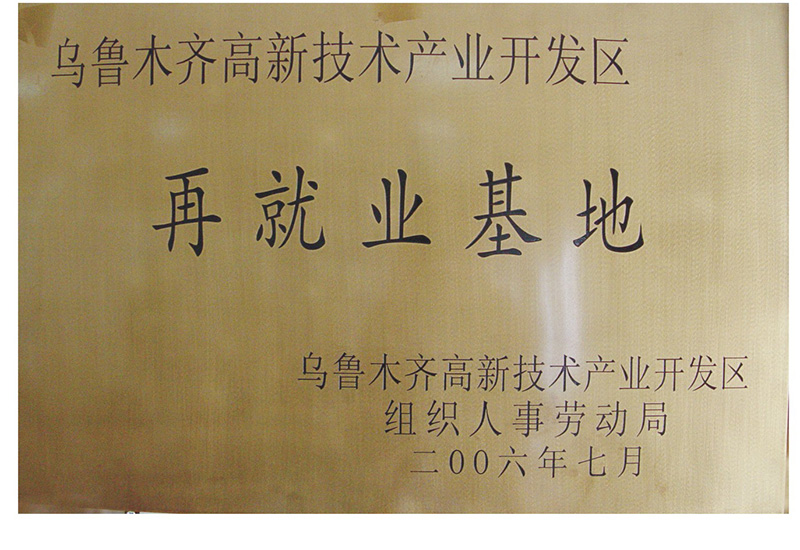 乌鲁木齐高新技术产业开发区
再就业基地
乌鲁木齐高新技术产业开发区
组织人事劳动局
二00六年七月